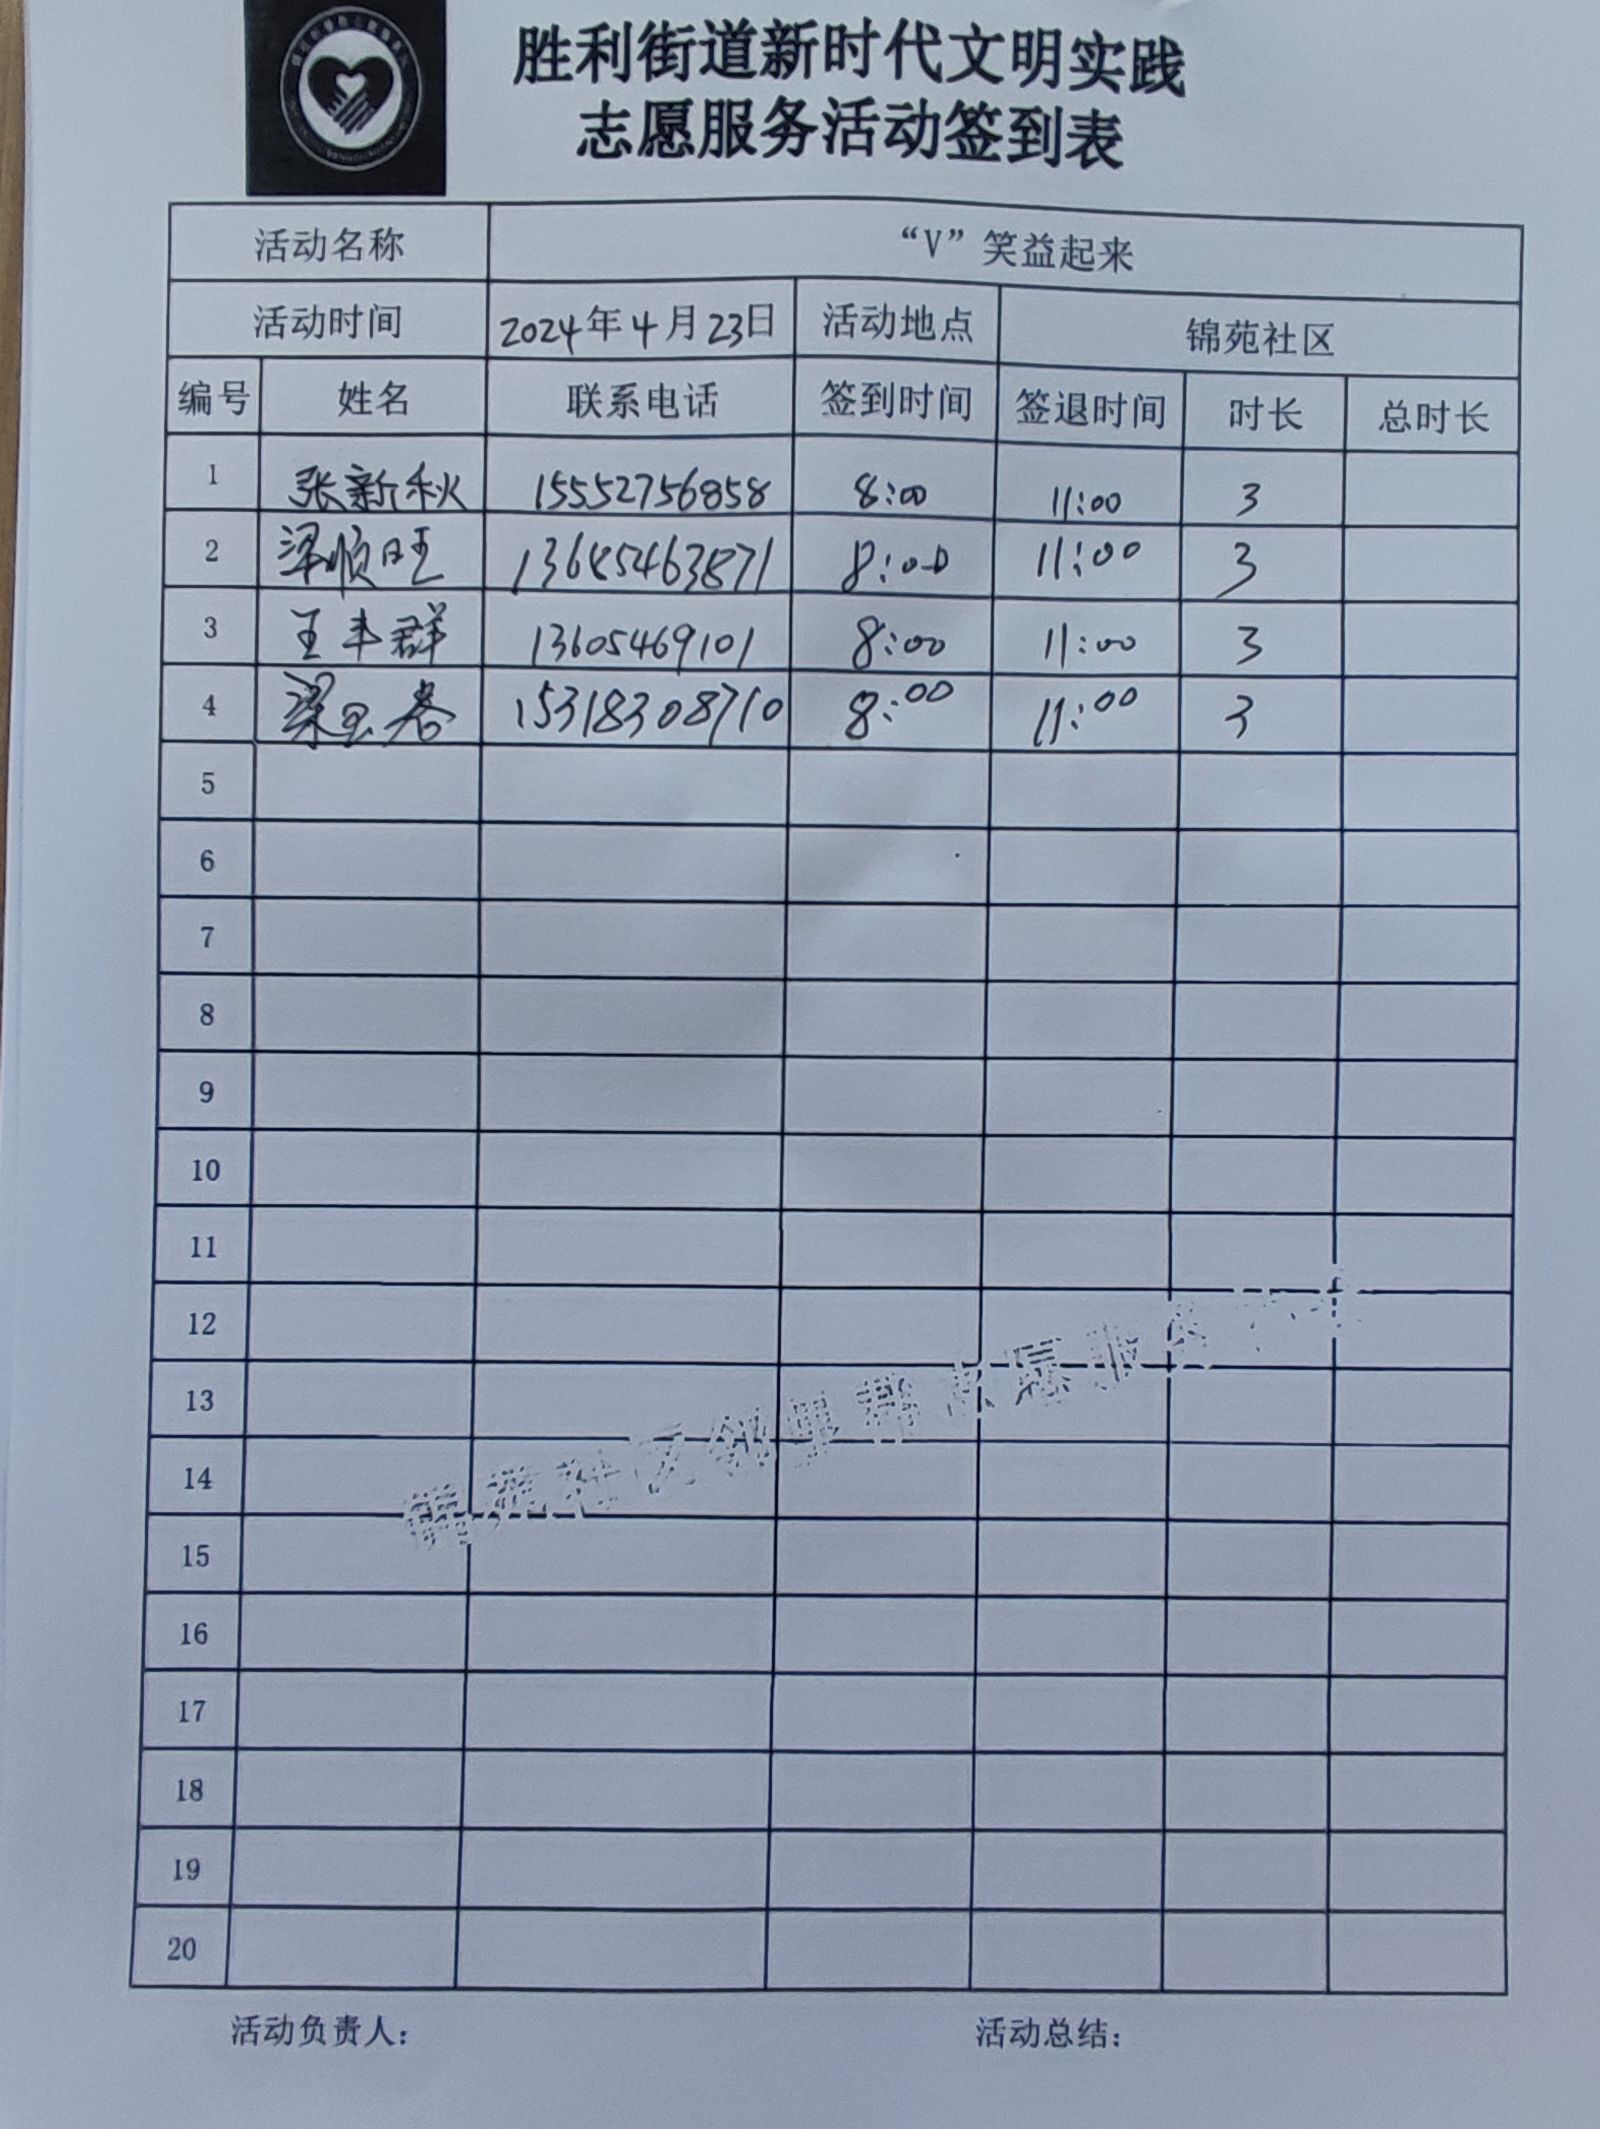 胜利街道新时代文明实践
志愿服务活动签到表
活动名称 “V”笑益起来
活动时间 2024年4月23日 活动地点 锦苑社区
编号 姓名 联系电话 签到时间 签退时间 时长 总时长
1 张新秋 15552756858 8:00 11:00 3
2 梁顺旺 13685463871 8:00 11:00 3
3 王丰群 13605469101 8:00 11:00 3
4 梁玉春 15318308710 8:00 11:00 3
5
6
7
8
9
10
11
12
13
14
15
16
17
18
19
20
活动负责人： 活动总结：